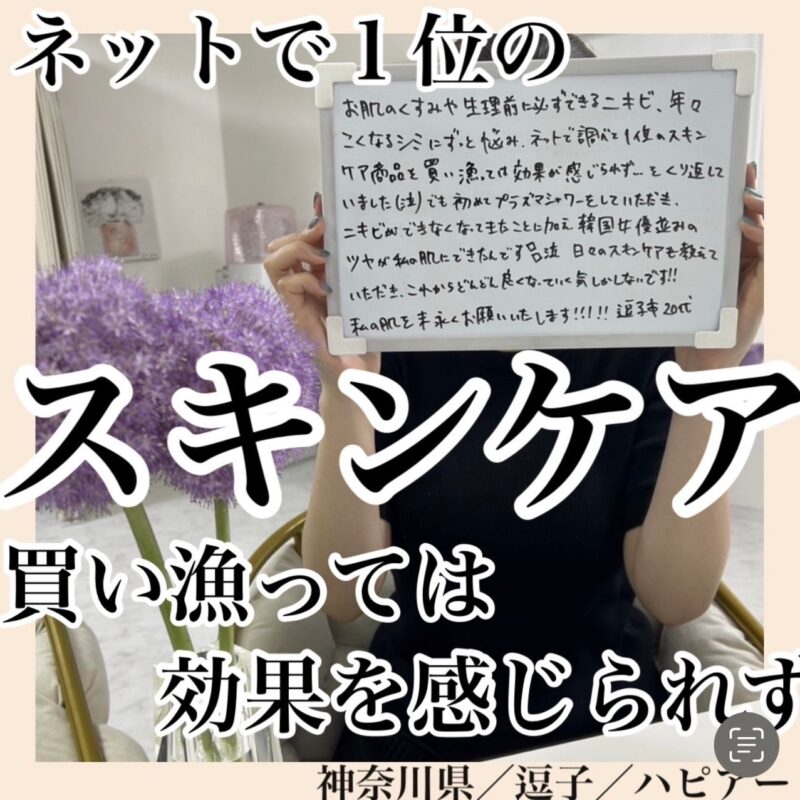 ネットで1位の
お肌のくすみや生理前に必ずできるニキビ、年々
こくなるシミにずっと悩み、ネットで調べて1位のスキン
ケア商品を買い漁っては効果が感じられず…をくり返して
いました(泣)でも初めてプラズマシャワーをしていただき、
ニキビができなくなってきたことに加え、韓国女優並みの
ツヤが私の肌にできたんです 泣 日々のスキンケアも教えて
いただき、これからどんどん良くなっていく気しかしないです!!
私の肌を末永くお願いいたします!!!!! 逗子市20代
スキンケア
買い漁っては
効果を感じられず
神奈川県／逗子／ハピアー